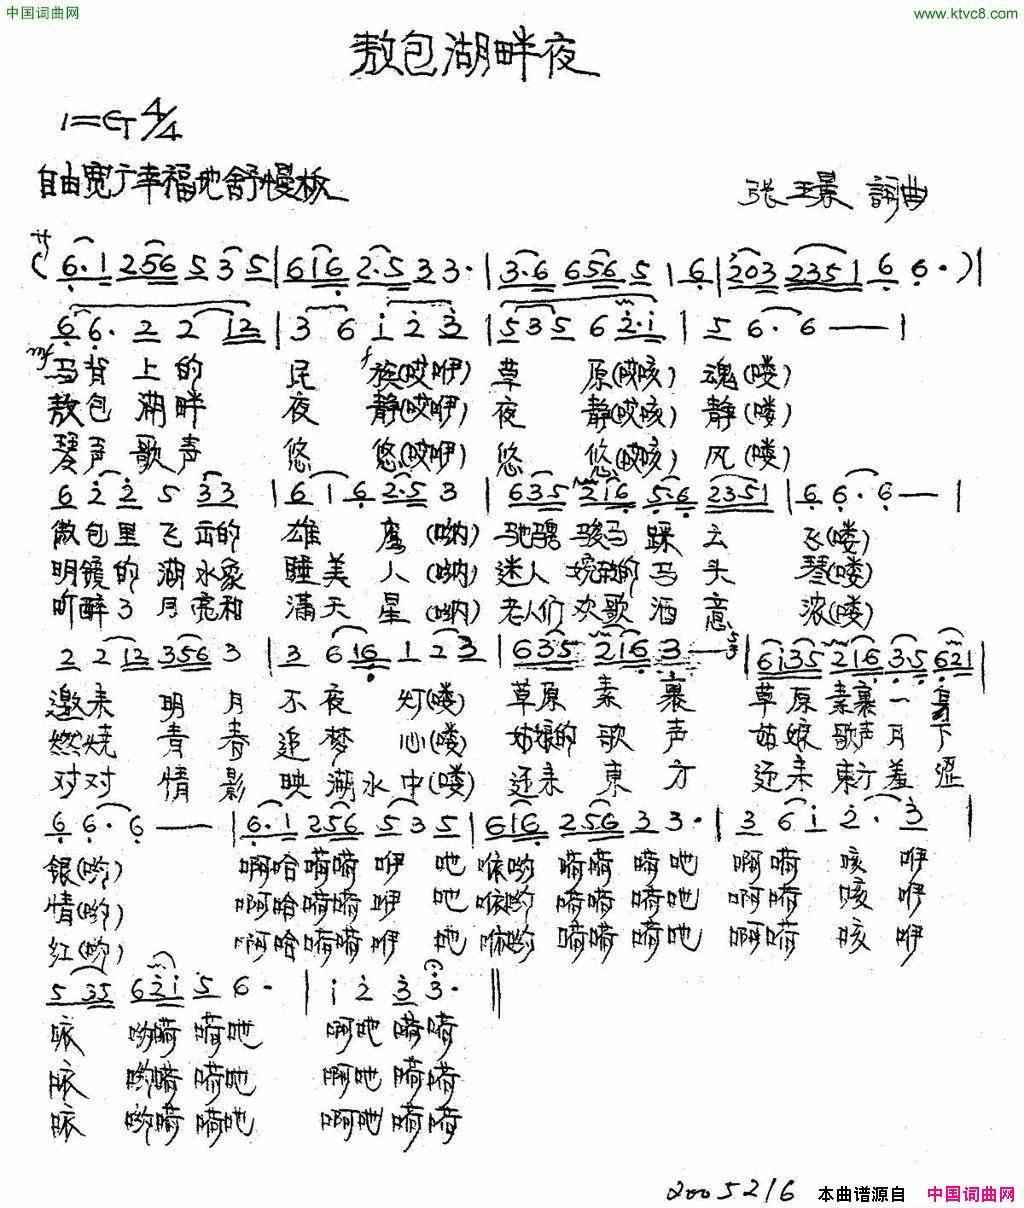 中国词曲网 www.ktvc8.com
敖包湖畔夜
1=G 4/4
自由宽广幸福地舒慢板 张玉景 詞曲
(6·1 256 5 35 | 616 2·5 33· | 3·6 656 5 1 6 | 203 2351 6 6·)|
6 6· 2 2 12 | 3 6 i 2 3 | 535 6 2·i | 5 6·6 — |
mf 马背上的 民 f 族(哎咿) 草 原(哎咳) 魂(喽)
敖包湖畔 夜 静(哎咿) 夜 静(哎咳) 静(喽)
琴声歌声 悠 悠(哎咿) 悠 悠(哎咳) 风(喽)
6 2 2 5 33 | 6 1 6 2·5 3 | 635 216 5·6 2351 | 6 6·6 — |
敖包里飞出的 雄 鹰(呐) 驰骋骏马踩云 飞(喽)
明镜的湖水象 睡美人(呐) 迷人婉转的马头 琴(喽)
听醉了月亮和 满天星(呐) 老人们欢歌酒意 浓(喽)
2 2 12 356 3 | 3 6 16 1 23 | 635 216 3 — 53 | 6i35 216 3·5 621 |
邀来明月 不夜灯(喽) 草原素裹 草原素裹一身
燃烧青春 追梦心(喽) 姑娘的歌声 姑娘歌声月下
对对情影 映湖水中(喽) 还来東方 还来東方羞涩
6 6·6 — | 6·1 256 5 3 5 | 616 256 3 3· | 3 6 i 2·3 |
银(哟) 啊哈嗬嗬咿吔 咴哟嗬嗬嗬吔 啊嗬咳咿
情(哟) 啊哈嗬嗬咿吔 咴哟嗬嗬嗬吔 啊嗬咳咿
红(哟) 啊哈嗬嗬咿吔 咴哟嗬嗬嗬吔 啊嗬咳咿
5 35 62i 5 6· | i 2 3 3· ‖
哟嗬嗬吔 啊吔嗬嗬
哟嗬嗬吔 啊吔嗬嗬
哟嗬嗬吔 啊吔嗬嗬
2005 2/6 本曲谱源自 中国词曲网